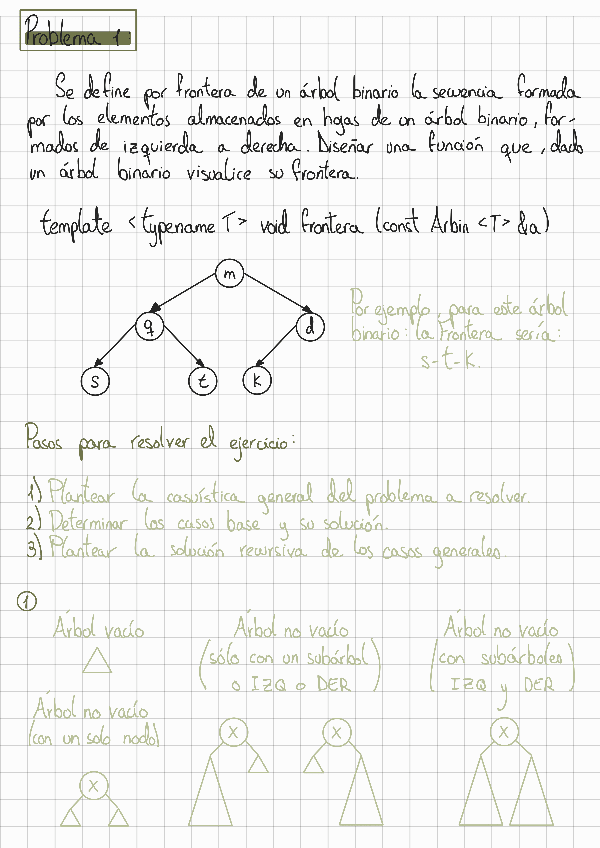 Problema 1
Se define por frontera de un árbol binario la secuencia formada
por los elementos almacenados en hojas de un árbol binario, for-
mados de izquierda a derecha. Diseñar una función que, dado
un árbol binario visualice su frontera.
template <typename T> void frontera (const Arbin <T> &a)
m
q
d
s
t
k
Por ejemplo, para este árbol
binario: la frontera sería:
s-t-k.
Pasos para resolver el ejercicio:
1) Plantear la casuística general del problema a resolver.
2) Determinar los casos base y su solución.
3) Plantear la solución recursiva de los casos generales.
1
Árbol vacío
Árbol no vacío
(con un solo nodo)
X
Árbol no vacío
(sólo con un subárbol
o IZQ o DER)
X
X
Árbol no vacío
(con subárboles
IZQ y DER)
X